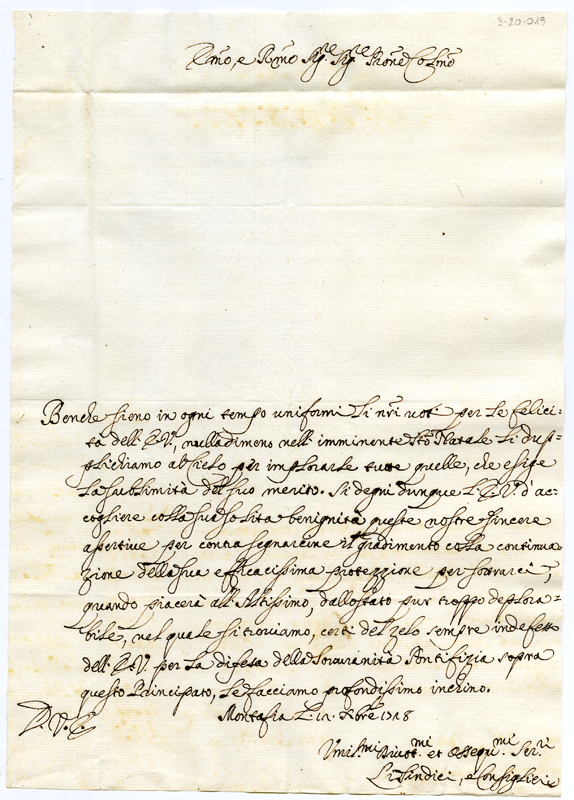 3-20-019
Emo, e Rmo Sig.re Sig.re Prone Colmo
Benche sieno in ogni tempo uniformi li nri voti per le felici:
tà dell'E.V., nulladimeno nell'imminente Sto Natale li dup=
plichiamo al Cielo per implorarle tutte quelle, che esige
la sublimità del suo merito. Si degni dunque l'E.V. d'ac=
cogliere colla sua solita benignità queste nostre sincere
assertive per contrasegnarcine il gradimento colla continua
zione della sua efficacissima protezzione per sottrarci,
quando piacerà all'Altissimo, dallo stato pur troppo deplora=
bile, nel quale si troviamo, certi del zelo sempre indefesso
dell'E.V. per la difesa della Sovranità Pontifizia sopra
questo Principato, le facciamo profondissimo inchino.
Montafia Xbre 1718
D. V. E.
Umil.mi Divot.mi et Ossequ.mi Ser.ri
Li Sandici, e Consiglieri